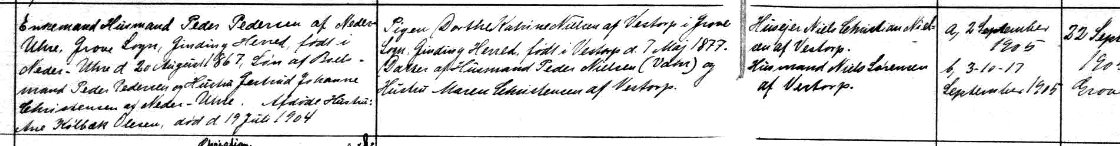 Enkemand Husmand Peder Pedersen af Neder-
Uhre, Grove Sogn, Ginding Herred, født i
Neder-Uhre d. 20 August 1867, Søn af Boels-
mand Peder Pedersen og Hustru Jastrid Johanne
Christensen af Neder-Uhre. Afdøde Hustru:
Ane Kolbæk Olesen, død d. 19 Juli 1904
Pigen, Dorthe Katrine Nielsen af Vestorp i Grove
Sogn, Ginding Herred, født i Vestorp d. 7 Maj 1877.
Datter af Husmand Peder Nielsen (Vahs) og
Hustru Maren Christensen af Vestorp.
Husejer Niels Christian Niel-
sen af Vestorp.
Husmand Niels Sørensen
af Vestorp.
a, 2 September
1905
b, 3-10-17
September 1905
22 Sept
190
Grov